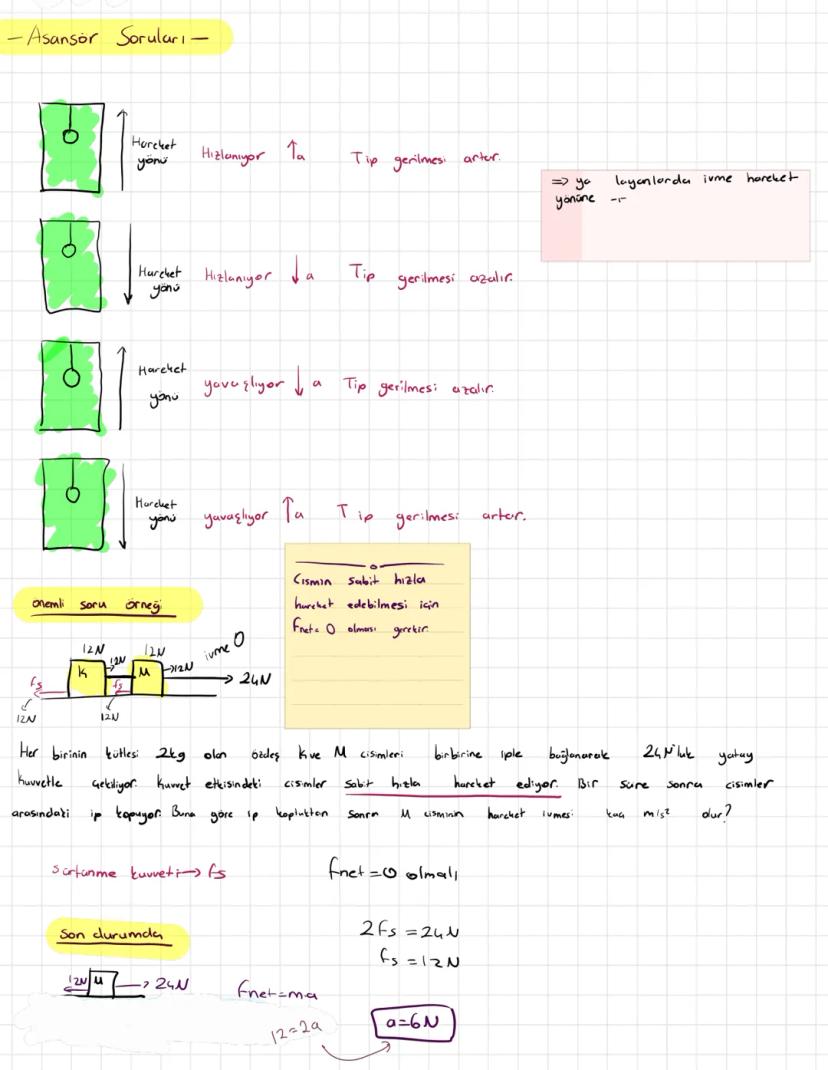 - Asansör Soruları -
Hareket yönü Hızlanıyor ↑a Tip gerilmesi artar.
=> ya layanlarda ivme hareket
yönüne
Hareket yönü Hızlanıyor ↓a Tip gerilmesi azalır.
Hareket yönü yavaşlıyor ↓a Tip gerilmesi azalır.
Hareket yönü yavaşlıyor ↑a Tip gerilmesi artar.
Cismin sabit hızla
hareket edebilmesi için
Fnet= 0 olması gerekir.
önemli soru örneği
12N 12N ivme 0
K 12N M →12N → 24N
fs fs
12N 12N
Her birinin kütlesi 2kg olan özdeş K ve M cisimleri birbirine iple bağlanarak 24N'luk yatay
kuvvetle çekiliyor. Kuvvet etkisindeki cisimler sabit hızla hareket ediyor. Bir süre sonra cisimler
arasındaki ip kopuyor. Buna göre ip koptuktan sonra M cisminin hareket ivmesi kaç m/s² olur?
sürtünme kuvveti → fs Fnet = 0 olmalı
2fs = 24N
fs = 12N
Son durumda
12N M → 24N Fnet=ma
12=2a a=6N